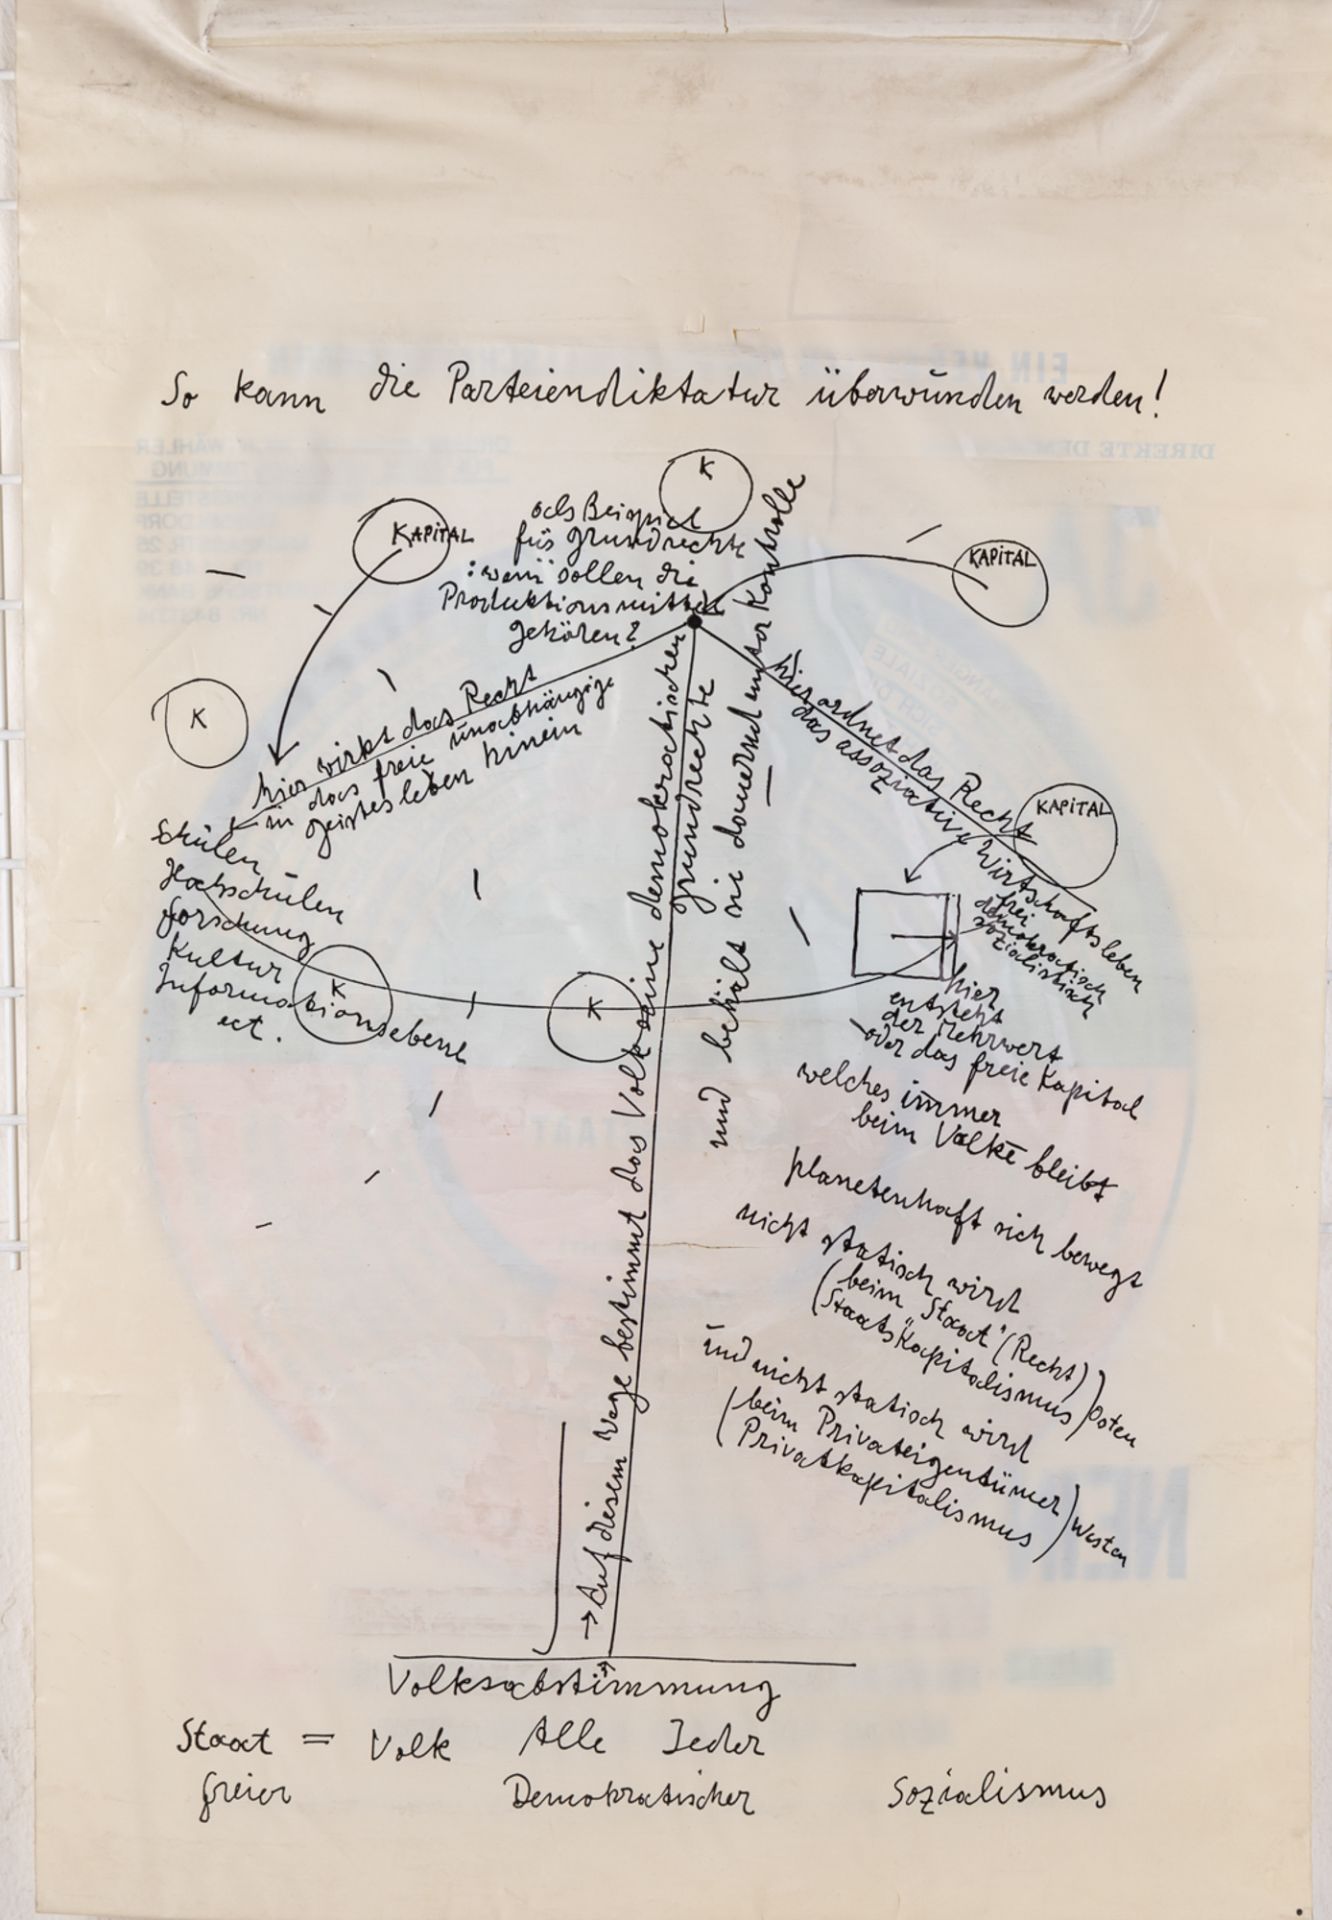 So kann die Parteiendiktatur überwunden werden!
K
KAPITAL
als Beispiel
für Grundrechte
: wem sollen die
Produktionsmittel
gehören?
KAPITAL
K
hier wirkt das Recht
in das freie unabhängige
Geistesleben hinein
Schulen
Hochschulen
Forschung
Kultur
Informationsebene
ect.
K
K
hier ordnet das Recht
das assoziative Wirtschaftsleben
frei
demokratisch
sozialistisch
KAPITAL
hier
entsteht
der Mehrwert
oder das freie Kapital
welches immer
beim Volke bleibt
planetenhaft sich bewegt
nicht statisch wird
(beim "Staat" (Recht)
(Staatskapitalismus) Osten
und nicht statisch wird
(beim Privateigentümer
(Privatkapitalismus) Westen
→ Auf diesem Wege bestimmt das Volk seine demokratischen
Grundrechte
und behält sie dauernd unter Kontrolle
Volksabstimmung
Staat = Volk Alle Jeder
freier Demokratischer Sozialismus
EIN
DIREKTE
WÄHLER
NEIN